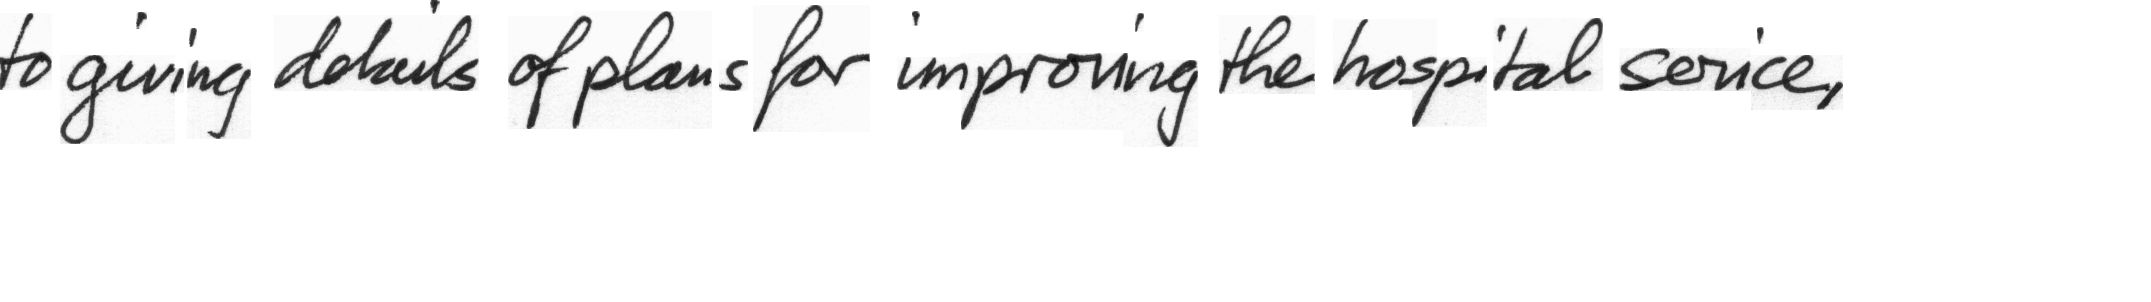 to giving details of plans for improving the hospital service,